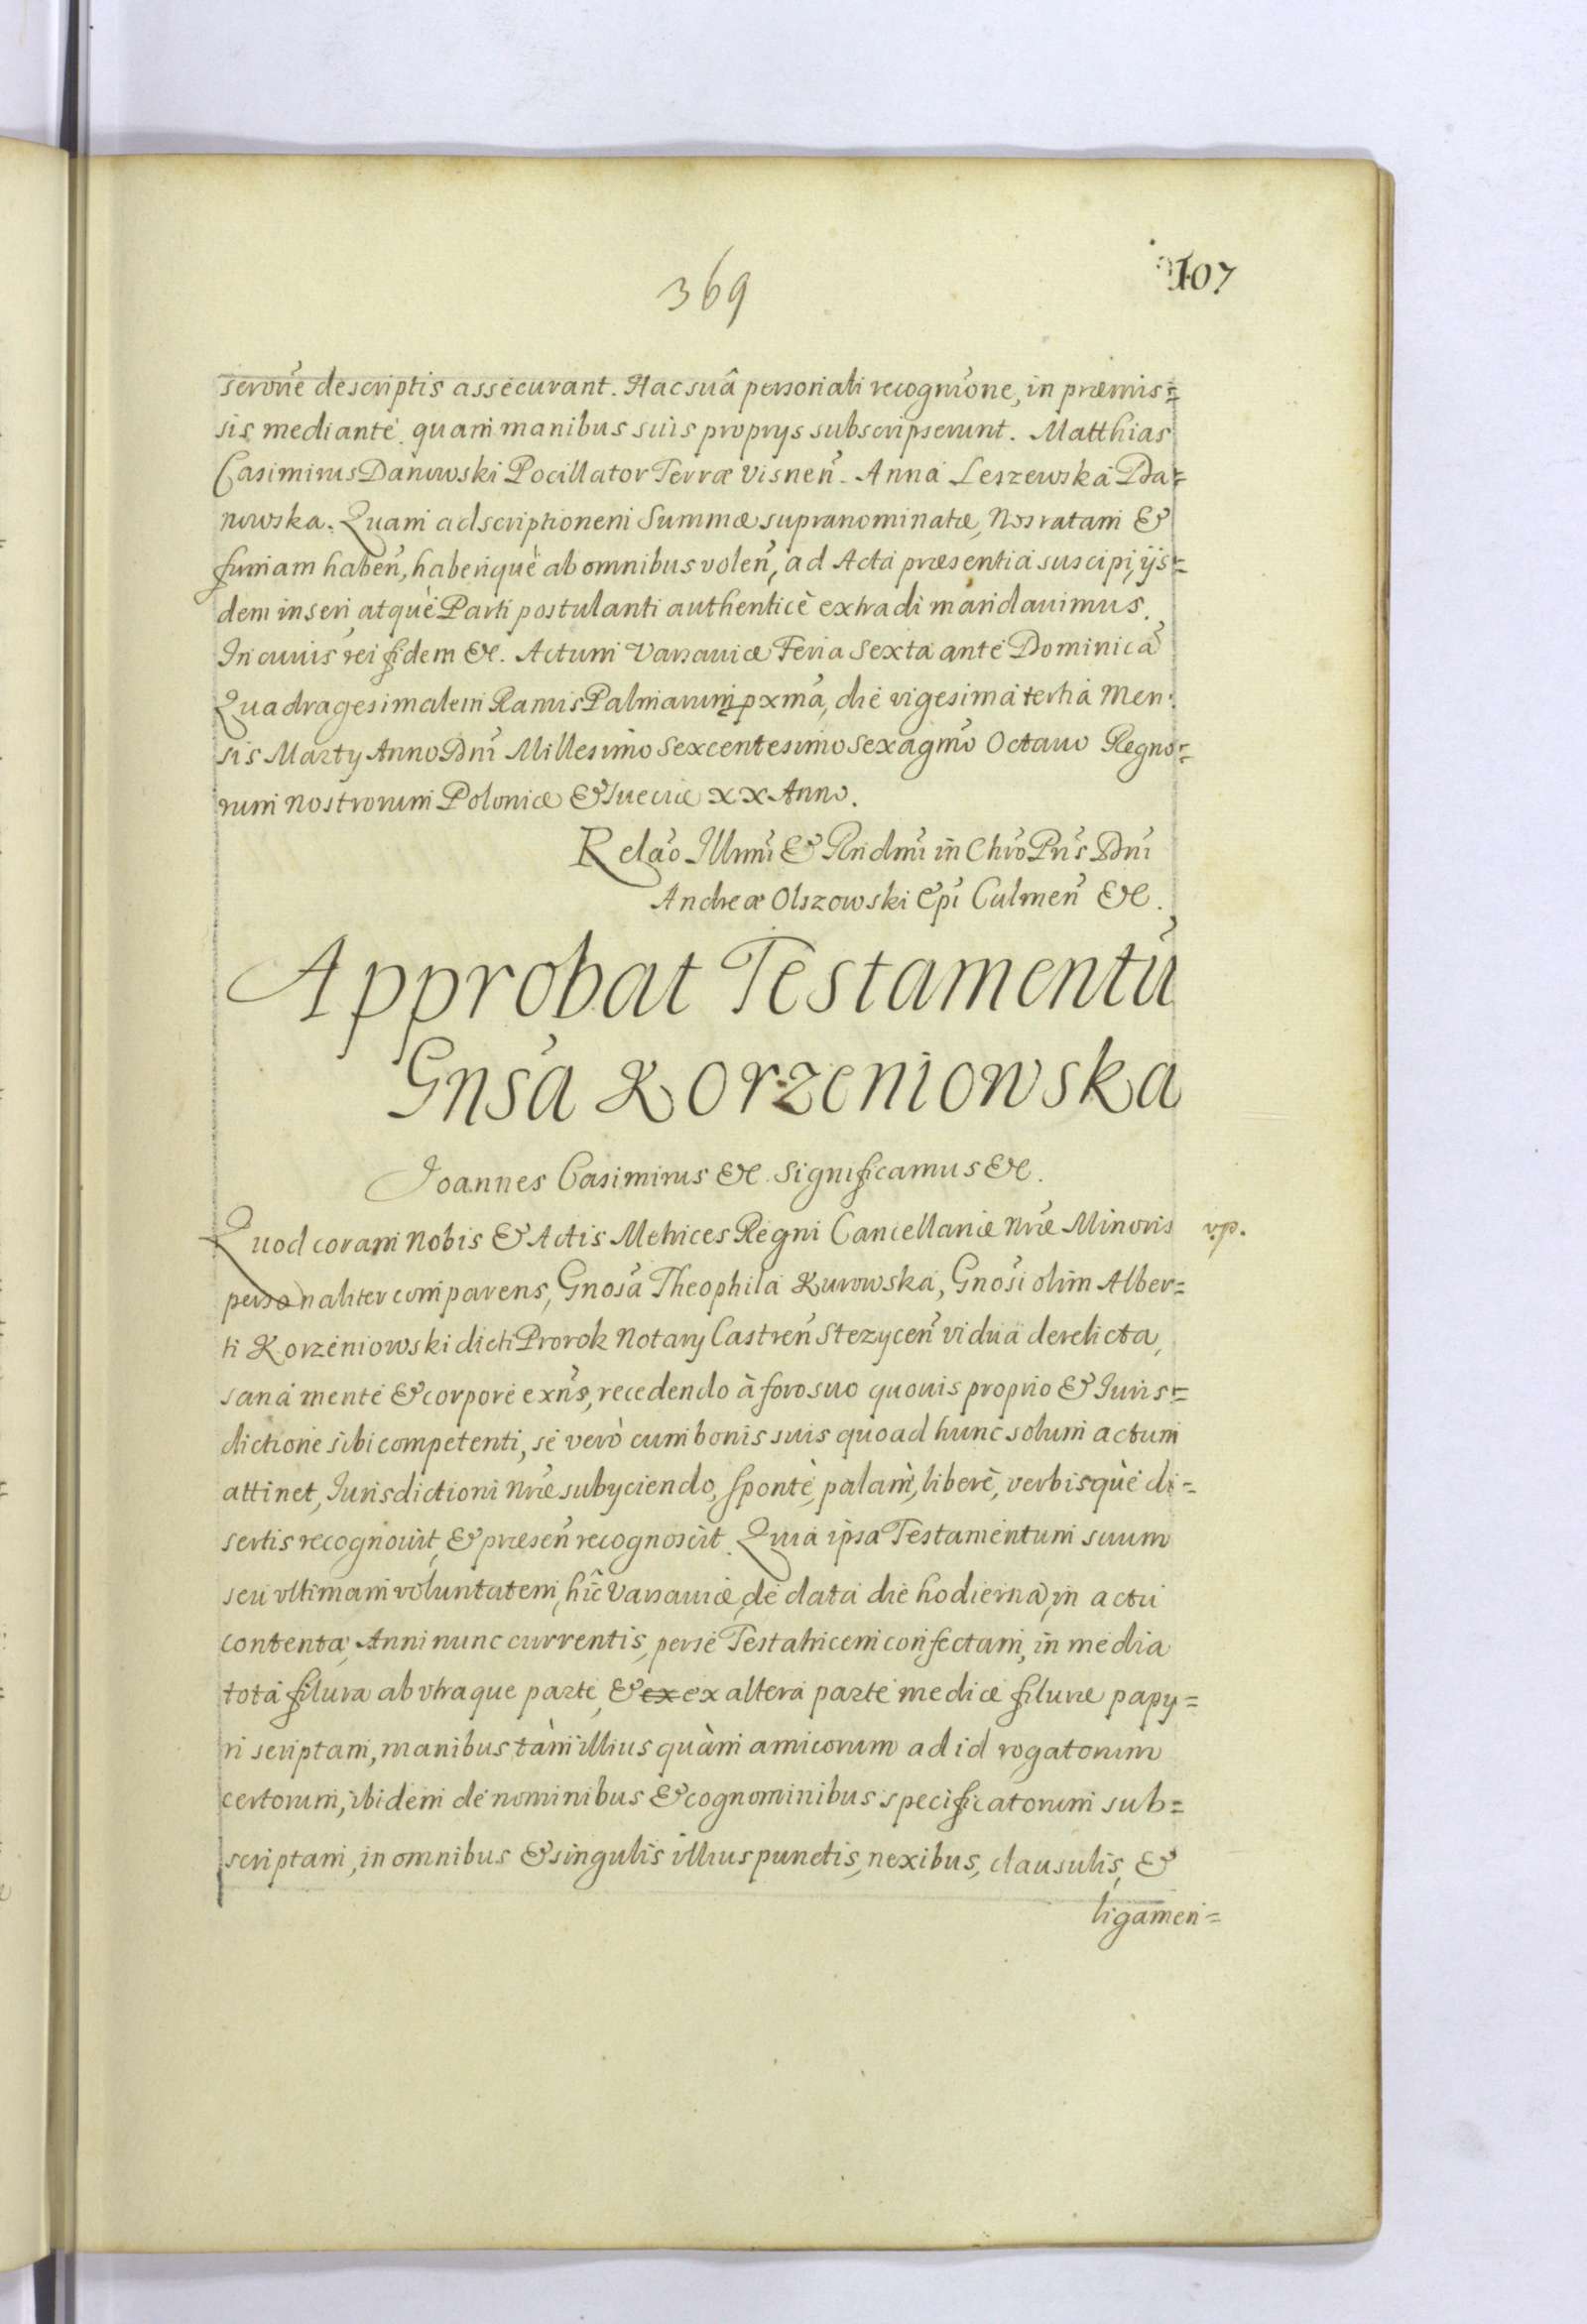 369
107
serōne descriptis assecurant. Hac suâ personali recognīone, in præmis=
sis mediante quam manibus suis proprys subscripserunt. Matthias
Casimirus Danowski Pocillator Terræ Visneñ. Anna Leszewska Da=
nowska. Quam adscriptionem Summæ supranominatæ, Nos ratam &
firmam habeñ, haberique ab omnibus voleñ, ad Acta præsentia suscipi, ijs=
dem inseri, atque Parti postulanti authenticè extradi mandauimus.
In cuius rei fidem &c. Actum Varsauiæ Feria Sexta ante Dominicā
Quadragesimalem Ramis Palmarum pxmā, die vigesima tertia Men:
sis Marty Anno Dnī Millesimo Sexcentesimo Sexagmō Octauo Regno=
rum nostrorum Poloniæ & Sueciæ XX Anno.
Relaō Illmī & Rndmī in Chrō Prīs Dnī
Andreæ Olszowski Epī Culmeñ &c.
Approbat Testamentū
Gnsā Korzeniowska
Joannes Casimirus &c. Significamus &c.
Quod coram Nobis & Actis Metrices Regni Cancellariæ Nræ Minoris
v.p.
personaliter comparens, Gnosā Theophila Kurowska, Gnosī olim Alber=
ti Korzeniowski dicti Prorok Notary Castreñ Stezyceñ vidua derelicta,
sana mente & corpore exñs, recedendo à foro suo quouis proprio & Juris=
dictione sibi competenti, se verò cum bonis suis quoad hunc solum actum
attinet, Jurisdictioni Nræ subyciendo, sponte, palam, liberè, verbisquè di=
sertis recognouit, & præseñ recognoscit. Quia ipsa Testamentum suum
seu vltimam voluntatem, hîc Varsauiæ, de data die hodierna, in actu
contenta, Anni nunc currentis, per se Testatricem confectam, in media
tota filura ab vtraque parte, & ex ex altera parte mediæ filuræ papy=
ri scriptam, manibus tàm illius quàm amicorum ad id rogatorum
certorum, ibidem de nominibus & cognominibus specificatorum sub=
scriptam, in omnibus & singulis illius punctis, nexibus, clausulis, &
ligamen=